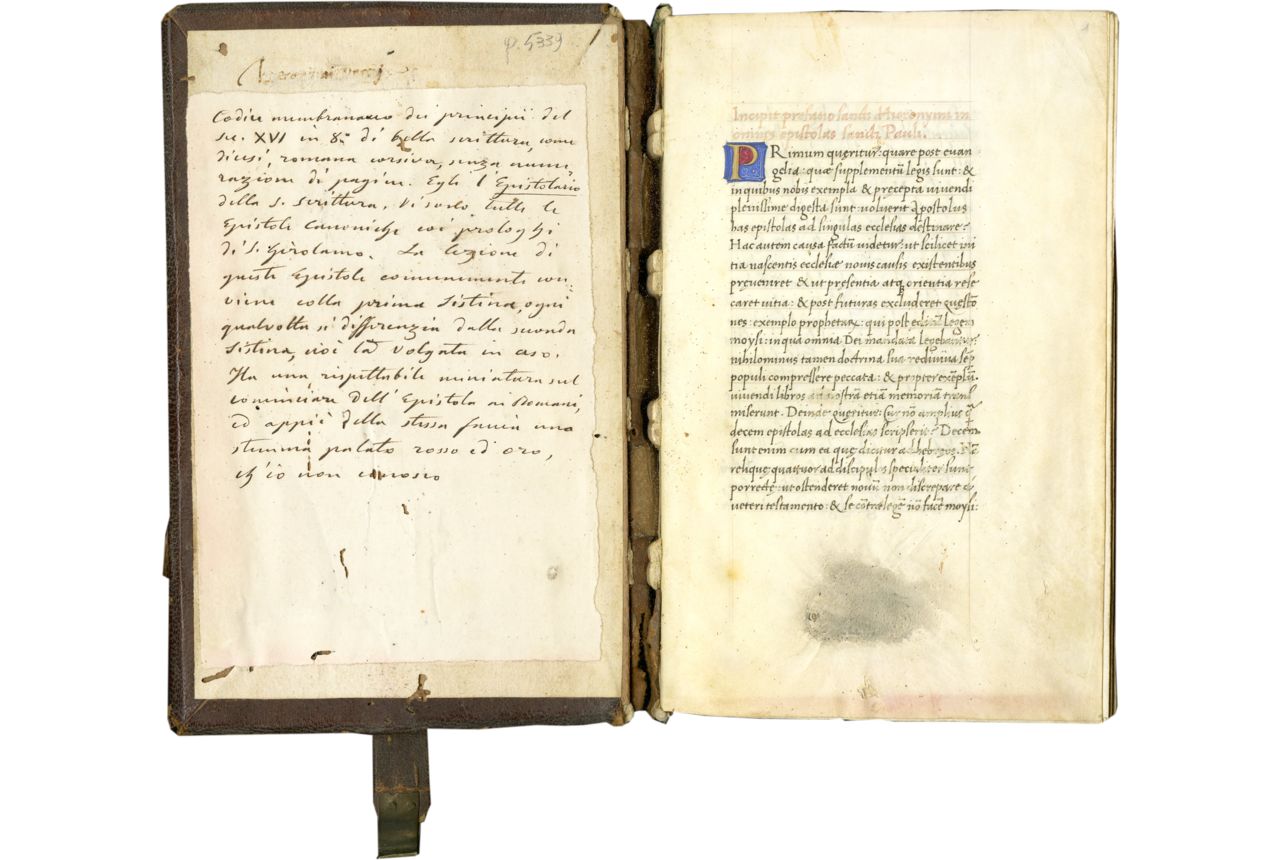 φ. 5339
Codice membranaceo dei principii del
sec. XVI in 8.° di bella scrittura, come
dicesi, romana corsiva, senza nume-
razione di pagine. Egli è l'Epistolario
della S. Scrittura. Vi sono tutte le
Epistole Canoniche coi prologhi
di S. Girolamo. La lezione di
queste Epistole comunemente con-
viene colla prima Sistina, ogni
qualvolta si differenzia dalla seconda
Sistina, cioè la Volgata in uso.
Ha una rispettabile miniatura sul
cominciare dell'Epistola ai Romani,
ed appiè della stessa faccia uno
stemma palato rosso ed oro,
ch'io non conosco
1
Incipit prefatio sancti Hieronymi in
omnis epistolas sancti Pauli.
PRimum queritur: quare post euan
gelia: quæ supplementū legis sunt: &
inquibus nobis exempla & precepta uiuendi
plenissime digesta sunt: uoluerit apostolus
has epistolas ad singulas ecclesias destinare.
Hac autem causa factū uidetur: ut scilicet ini
tia nascentis ecclesiæ nouis causis existentibus
preueniret & ut presentia atq; orientia rese
caret uitia: & post futuras excluderet questio
nes: exemplo prophetaꝝ: qui post legem
moysi: inqua omnia Dei mandata legebantur:
nihilominus tamen doctrina sua rediuiua sēp
populi compressere peccata: & propter exēplū
uiuendi libros ad nostrā etiā memoriā trans
miserunt. Deinde queritur: Cur nō amplius q̄
decem epistolas ad ecclesias scripserit: Decem
sunt enim cum ea que dicitur ad hebreos. Nā
relique quattuor ad discipulos specialiter sunt
porrecte: ut ostenderet nouū non discrepare a
ueteri testamento: & se cōtra legē nō facē moysi: